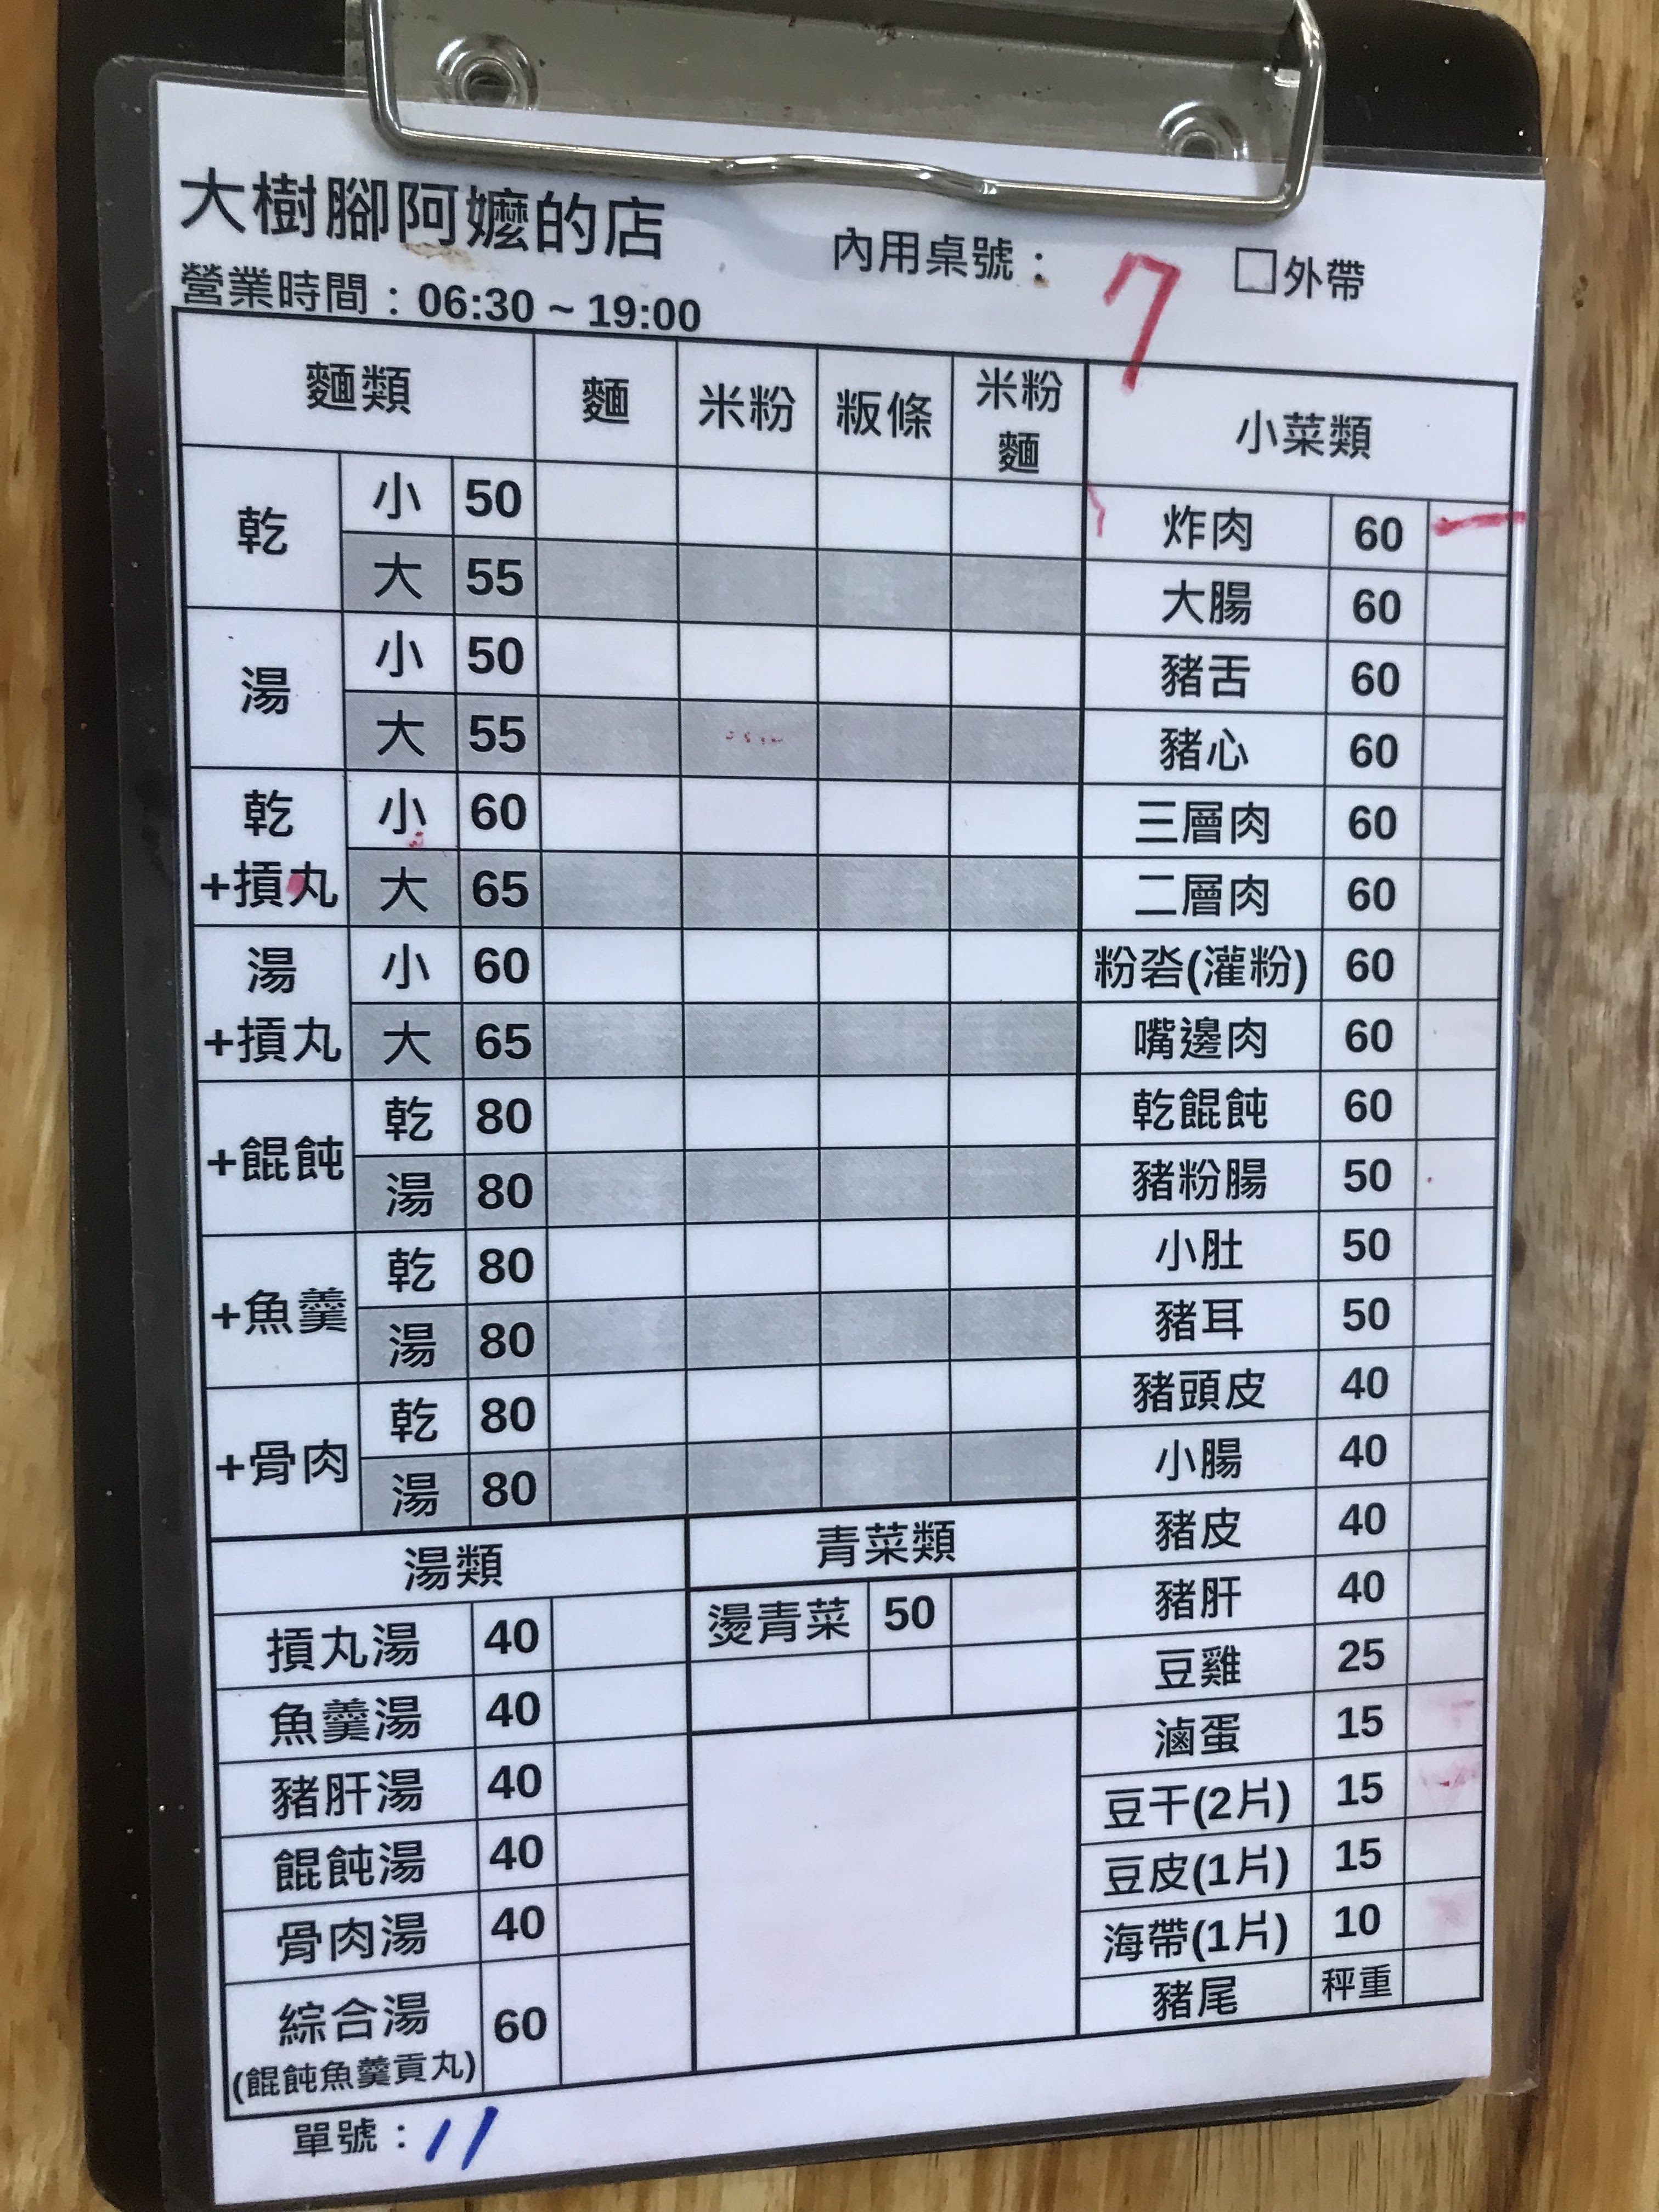 大樹腳阿嬤的店
內用桌號： 7 □外帶
營業時間：06:30 ~ 19:00
麵類 麵 米粉 粄條 米粉麵
乾 小 50
大 55
湯 小 50
大 55
乾+摃丸 小 60
大 65
湯+摃丸 小 60
大 65
+餛飩 乾 80
湯 80
+魚羹 乾 80
湯 80
+骨肉 乾 80
湯 80
湯類
摃丸湯 40
魚羹湯 40
豬肝湯 40
餛飩湯 40
骨肉湯 40
綜合湯 60
(餛飩魚羹貢丸)
青菜類
燙青菜 50
小菜類
炸肉 60
大腸 60
豬舌 60
豬心 60
三層肉 60
二層肉 60
粉硓(灌粉) 60
嘴邊肉 60
乾餛飩 60
豬粉腸 50
小肚 50
豬耳 50
豬頭皮 40
小腸 40
豬皮 40
豬肝 40
豆雞 25
滷蛋 15
豆干(2片) 15
豆皮(1片) 15
海帶(1片) 10
豬尾 秤重
單號：11